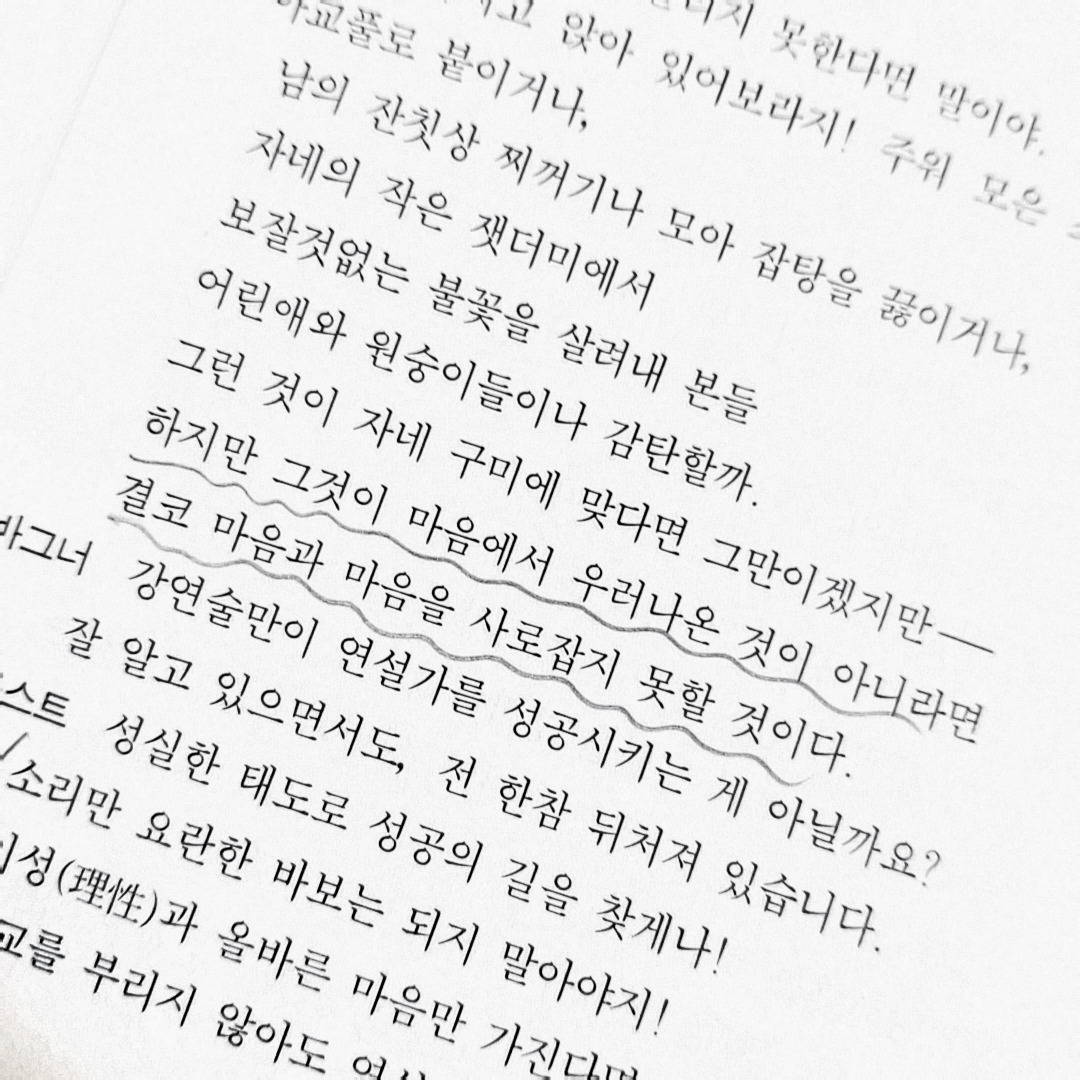 지 못한다면 말이야.
고 앉아 있어보라지! 주워 모은
아교풀로 붙이거나,
남의 잔칫상 찌꺼기나 모아 잡탕을 끓이거나,
자네의 작은 잿더미에서
보잘것없는 불꽃을 살려내 본들
어린애와 원숭이들이나 감탄할까.
그런 것이 자네 구미에 맞다면 그만이겠지만―
하지만 그것이 마음에서 우러나온 것이 아니라면
결코 마음과 마음을 사로잡지 못할 것이다.
바그너 강연술만이 연설가를 성공시키는 게 아닐까요?
잘 알고 있으면서도, 전 한참 뒤처져 있습니다.
스트 성실한 태도로 성공의 길을 찾게나!
소리만 요란한 바보는 되지 말아야지!
이성(理性)과 올바른 마음만 가진다면
교를 부리지 않아도